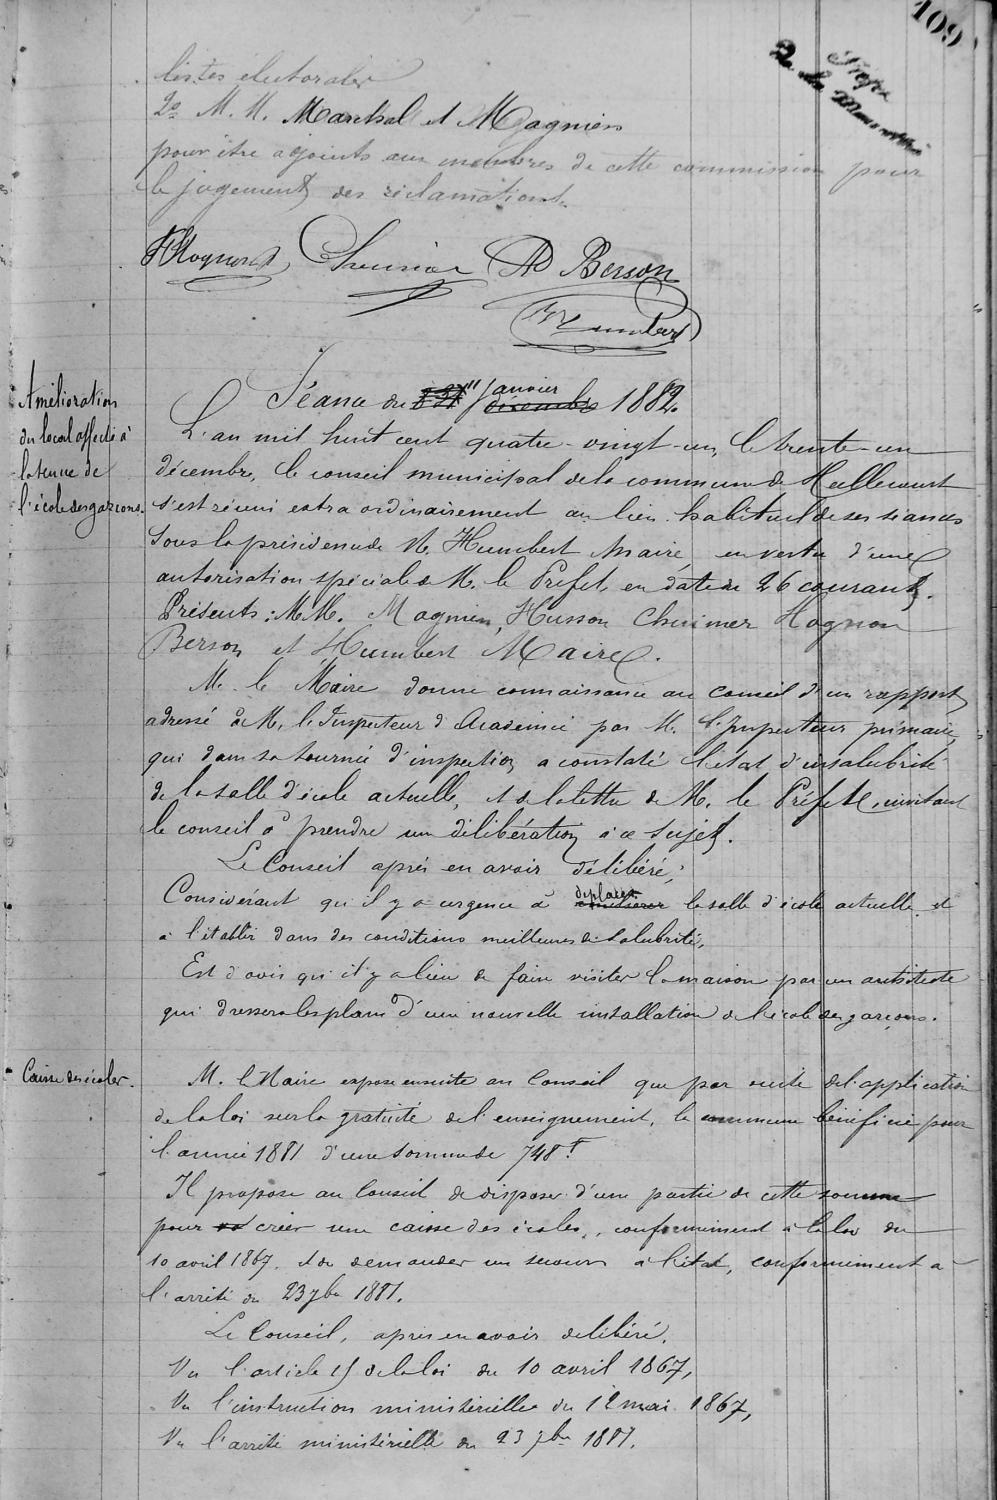 109
Préfre
de la Meuse
listes électorales
2º M. M. Marchal et Magnien
pour être adjoints aux membres de cette commission pour
le jugement des réclamations.
Hognon
AD Berson
Humbert
Séance du Janvier décembre 1882.
Amélioration
du local affecté à
la tenue de
l'école des garçons.
L'an mil huit cent quatre-vingt-un, le trente-un
décembre, le conseil municipal de la commune de Hallecourt
s'est réuni extraordinairement au lieu habituel de ses séances
sous la présidence de M. Humbert Maire, en vertu d'une
autorisation spéciale de M. le Préfet, en date du 26 courant.
Présents : MM. Magnien, Husson Hognon
Berson et Humbert Maire.
M. le Maire donne connaissance au conseil d'un rapport
adressé à M. l'Inspecteur d'Académie par M. l'Inspecteur primaire,
qui dans sa tournée d'inspection a constaté l'état d'insalubrité
de la salle d'école actuelle, et de la lettre de M. le Préfet, invitant
le conseil à prendre une délibération à ce sujet.
Le Conseil après en avoir délibéré ;
Considérant qu'il y a urgence à déplacer la salle d'école actuelle et
à l'établir dans des conditions meilleures de salubrité,
Est d'avis qu'il y a lieu de faire visiter la maison par un architecte
qui dressera les plans d'une nouvelle installation de l'école des garçons.
Caisse des écoles.
M. le Maire expose ensuite au Conseil que par suite de l'application
de la loi sur la gratuité de l'enseignement, la commune bénéficie pour
l'année 1881 d'une somme de 748 f
Il propose au Conseil de disposer d'une partie de cette somme
pour créer une caisse des écoles, conformément à la loi du
10 avril 1867, et de demander un secours à l'état, conformément à
l'arrêté du 23 7bre 1881.
Le Conseil, après en avoir délibéré,
Vu l'article 15 de la loi du 10 avril 1867,
Vu l'instruction ministérielle du 12 mai 1867,
Vu l'arrêté ministérielle du 23 7bre 1881.